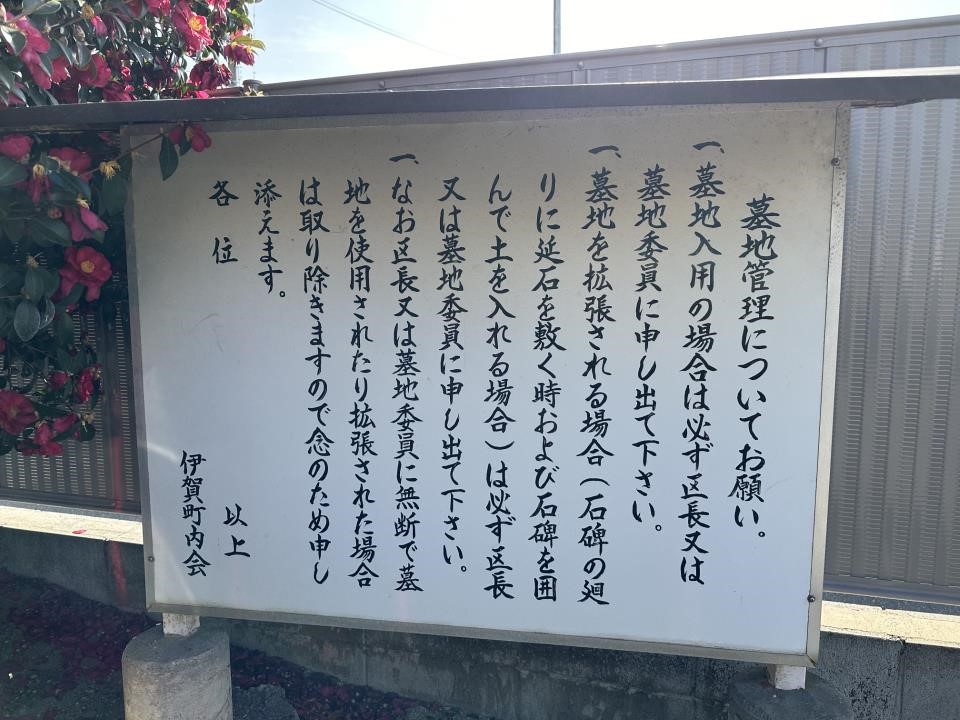 墓地管理についてお願い。
一、墓地入用の場合は必ず区長又は
墓地委員に申し出て下さい。
一、墓地を拡張される場合(石碑の廻
りに延石を敷く時および石碑を囲
んで土を入れる場合)は必ず区長
又は墓地委員に申し出て下さい。
一、なお区長又は墓地委員に無断で墓
地を使用されたり拡張された場合
は取り除きますので念のため申し
添えます。
以上
各位
伊賀町内会